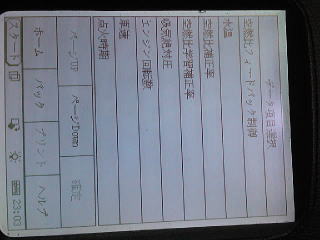 データ項目選択
空燃比フィードバック制御
水温
空燃比補正率
空燃比学習補正率
吸気絶対圧
エンジン回転数
車速
点火時期
ページUP ページDown 確定
ホーム バック プリント ヘルプ
スタート 23:03